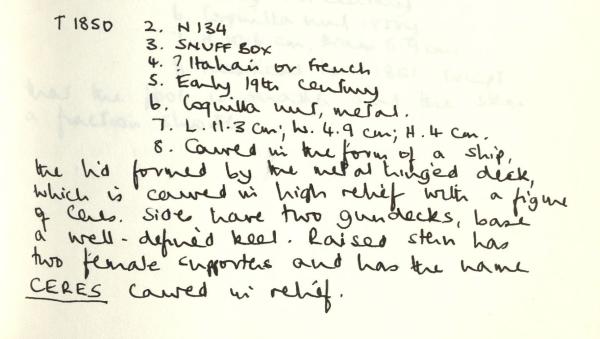 T 1850 2. N 134
3. SNUFF BOX
4. ? Italian or French
5. Early 19th century
6. Coquilla nut, metal.
7. L. 11.3 cm; W. 4.9 cm; H. 4 cm.
8. Carved in the form of a ship,
the lid formed by the metal hinged deck,
which is carved in high relief with a figure
of Ceres. Sides have two gundecks, base
a well-defined keel. Raised stern has
two female supporters and has the name
CERES carved in relief.